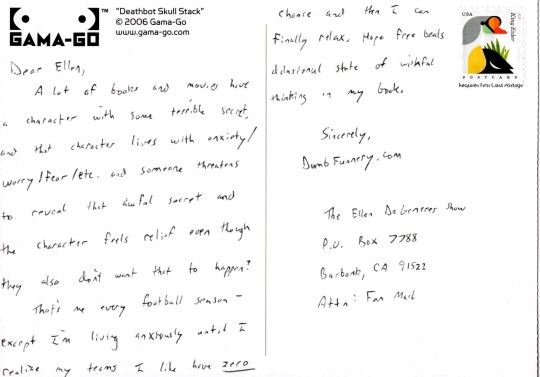 "Deathbot Skull Stack"
© 2006 Gama-Go
www.gama-go.com
GAMA-GO™
Dear Ellen,
A lot of books and movies have
a character with some terrible secret,
and that character lives with anxiety/
worry/fear/etc. and someone threatens
to reveal that awful secret and
the character feels relief even though
they also don't want that to happen?
That's me every football season –
except I'm living anxiously until I
realize my teams I like have zero
chance and then I can
finally relax. Hope free beats
delusional state of wishful
thinking in my book.
Sincerely,
DumbFunnery.com
The Ellen DeGeneres Show
P.O. Box 7788
Burbank, CA 91522
Attn: Fan Mail
USA
King Eider
POSTCARD